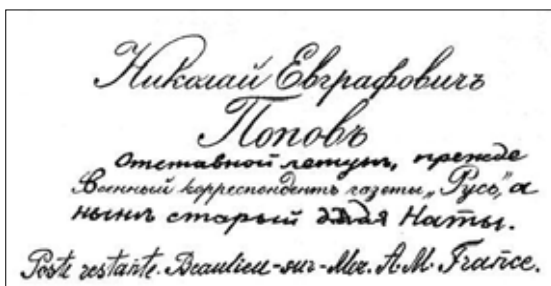 Николай Евграфовичъ
Поповъ
Отставной летунъ, прежде
Военный корреспондентъ газеты „Русь”, а
нынѣ старый дядя Наты.
Poste restante. Beaulieu-sur-Mer. A.M. France.